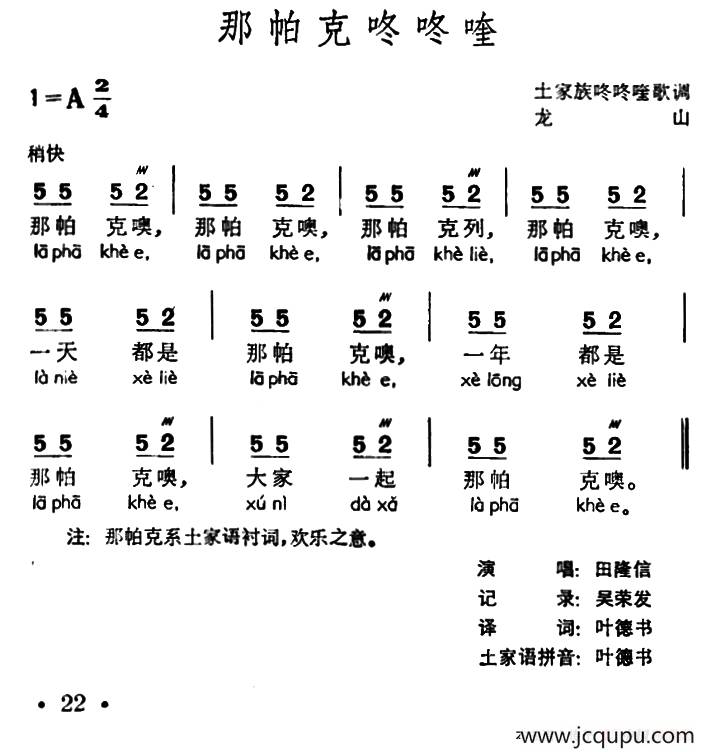 那帕克咚咚喹
1=A 2/4
土家族咚咚喹歌调
龙山
稍快
5 5 5 2 | 5 5 5 2 | 5 5 5 2 | 5 5 5 2 |
那帕 克噢, 那帕 克噢, 那帕 克列, 那帕 克噢,
lāphā khè e, lāphā khè e, lāphā khè liè, lāphā khè e,
5 5 5 2 | 5 5 5 2 | 5 5 5 2 |
一天 都是 那帕 克噢, 一年 都是
là niè xè liè lāphā khè e, xè lōng xè liè
5 5 5 2 | 5 5 5 2 | 5 5 5 2 ‖
那帕 克噢, 大家 一起 那帕 克噢。
lāphā khè e, xú nì dà xǎ làphā khè e。
注: 那帕克系土家语衬词,欢乐之意。
演唱: 田隆信
记录: 吴荣发
译词: 叶德书
土家语拼音: 叶德书
· 22 ·
www.jcqupu.com